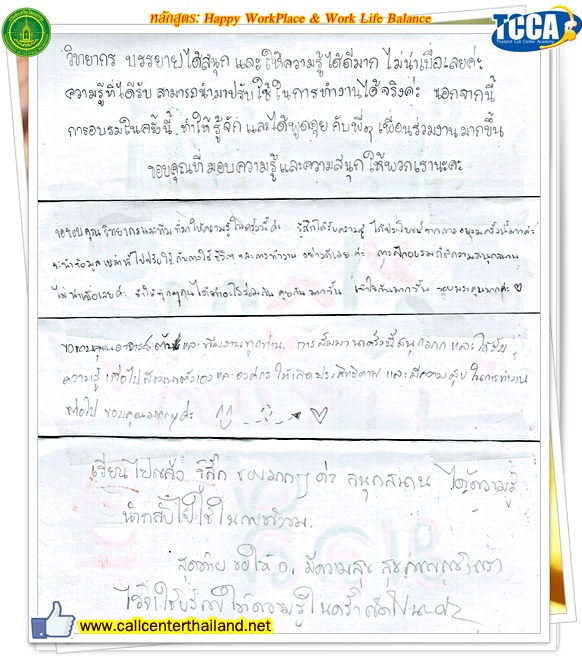 หลักสูตร: Happy WorkPlace & Work Life Balance
TCCA
Thailand Call Center Academy
วิทยากร บรรยายได้สนุก และ ให้ความรู้ได้ดีมาก ไม่น่าเบื่อเลยค่ะ
ความรู้ที่ได้รับ สามารถนำมาปรับใช้ ในการทำงานได้จริงค่ะ นอกจากนี้
การอบรมในครั้งนี้ ทำให้รู้จัก และได้พูดคุย กับพี่ๆ เพื่อนร่วมงาน มากขึ้น
ขอบคุณที่มอบความรู้และความสนุก ให้พวกเรานะคะ
ขอขอบคุณ วิทยากรและทีม ที่มาให้ความรู้ในครั้งนี้ค่ะ รู้สึกได้รับความรู้ ได้ประโยชน์ จากการ อบรมครั้งนี้มากค่ะ
จะนำข้อมูล เหล่านี้ไปปรับใช้ กับการใช้ชีวิต และการทำงาน อย่างดีเลย ค่ะ
ไม่น่าเบื่อเลยค่ะ ทำให้ทุกๆคนได้ คุยกัน มากขึ้น เข้าใจกันมากขึ้น ขอบพระคุณมากค่ะ ♡
ขอขอบคุณอาจารย์ และ ทีมงานทุกท่าน การสัมมนาครั้งนี้สนุกมาก และได้รับ
ความรู้ เพื่อไปพัฒนาตัวเอง และ องค์กร ให้เกิดประสิทธิภาพ และ มีความสุข ในการทำงาน
ต่อไป ขอบคุณมากๆ ค่ะ ♡
เรียนไปแล้ว รู้สึก ชอบมากๆ ค่ะ สนุกสนาน ได้ความรู้
นำกลับไปใช้
สุดท้าย ขอให้ อ. มีความสุข
ให้ความรู้ในครั้งต่อไปนะคะ
www.callcenterthailand.net